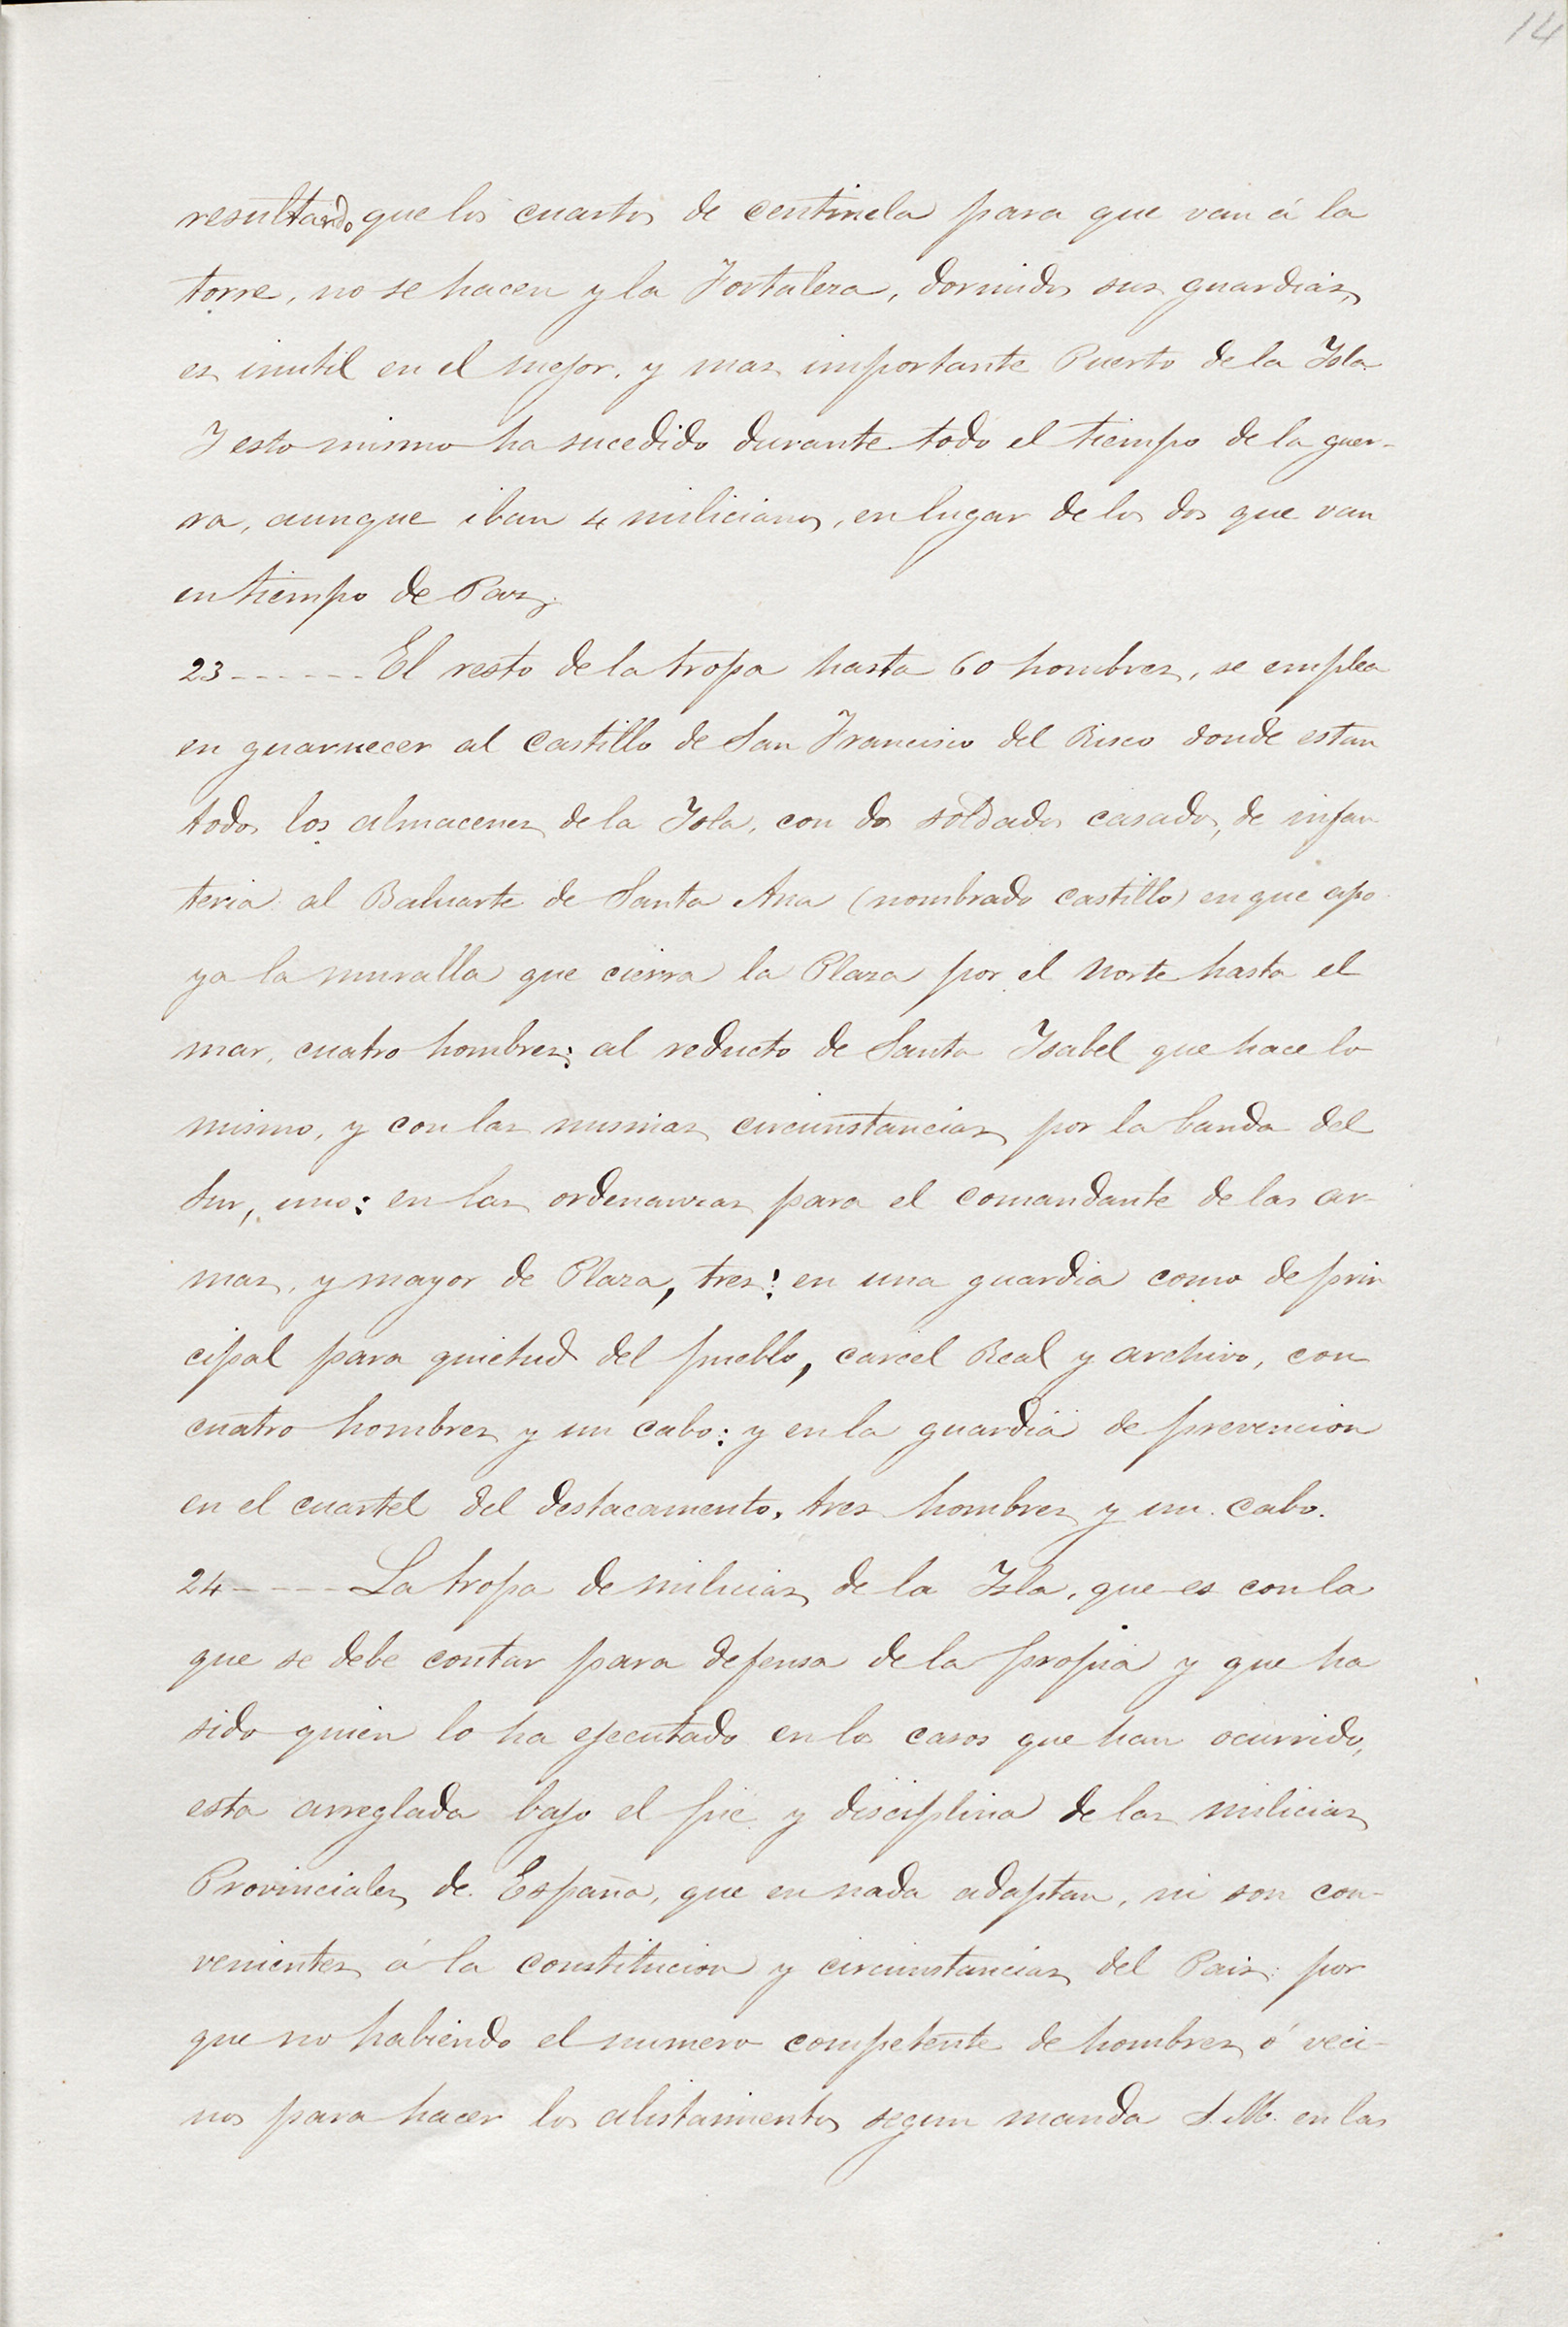 14
resultando que los cuartos de centinela para que van á la
torre, no se hacen y la Fortaleza, dormidos sus guardias,
es inutil en el mejor, y mas importante Puerto de la Isla.
Y esto mismo ha sucedido durante todo el tiempo de la guer-
ra, aunque iban 4 milicianos, en lugar de los dos que van
en tiempo de Paz.
23 ------ El resto de la tropa hasta 60 hombres, se emplea
en guarnecer al Castillo de San Francisco del Risco donde estan
todos los almacenes de la Isla, con dos soldados casados, de infan
teria: al Baluarte de Santa Ana (nombrado castillo) en que apo
ya la muralla que cierra la Plaza por el Norte hasta el
mar, cuatro hombres; al reducto de Santa Isabel que hace lo
mismo, y con las mismas circunstancias por la banda del
Sur, uno: en las ordenanzas para el comandante de las ar-
mas, y mayor de Plaza, tres: en una guardia como de prin
cipal para quietud del pueblo, carcel Real y archivo, con
cuatro hombres y un cabo: y en la guardia de prevencion
en el cuartel del destacamento, tres hombres y un cabo.
24 ---- La tropa de milicias de la Isla, que es con la
que se debe contar para defensa de la propia y que ha
sido quien lo ha ejecutado en los casos que han ocurrido,
esta arreglada bajo el pie y disciplina de las milicias
Provinciales de España, que en nada adaptan, ni son con-
venientes á la constitucion y circunstancias del Pais: por
que no habiendo el numero competente de hombres ó veci-
nos para hacer los alistamientos segun manda S.M. en las